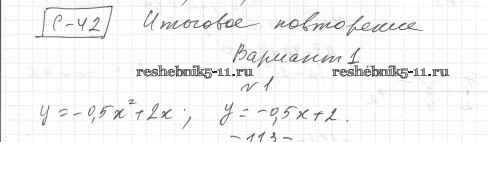 С-42 Итоговое повторение
Вариант 1
reshebnik5-11.ru reshebnik5-11.ru
№1
y = -0,5x² + 2x ; y = -0,5x + 2 .
-113-